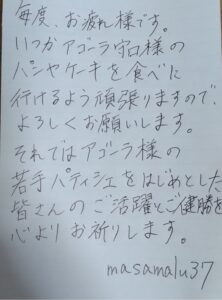 毎度、お疲れ様です。
いつかアゴーラ守口様の
パシャケーキを食べに
行けるよう頑張りますので、
よろしくお願いします。
それではアゴーラ様の
若手パティシエをはじめとした
皆さんのご活躍とご健勝を
心よりお祈りします。
masamalu37